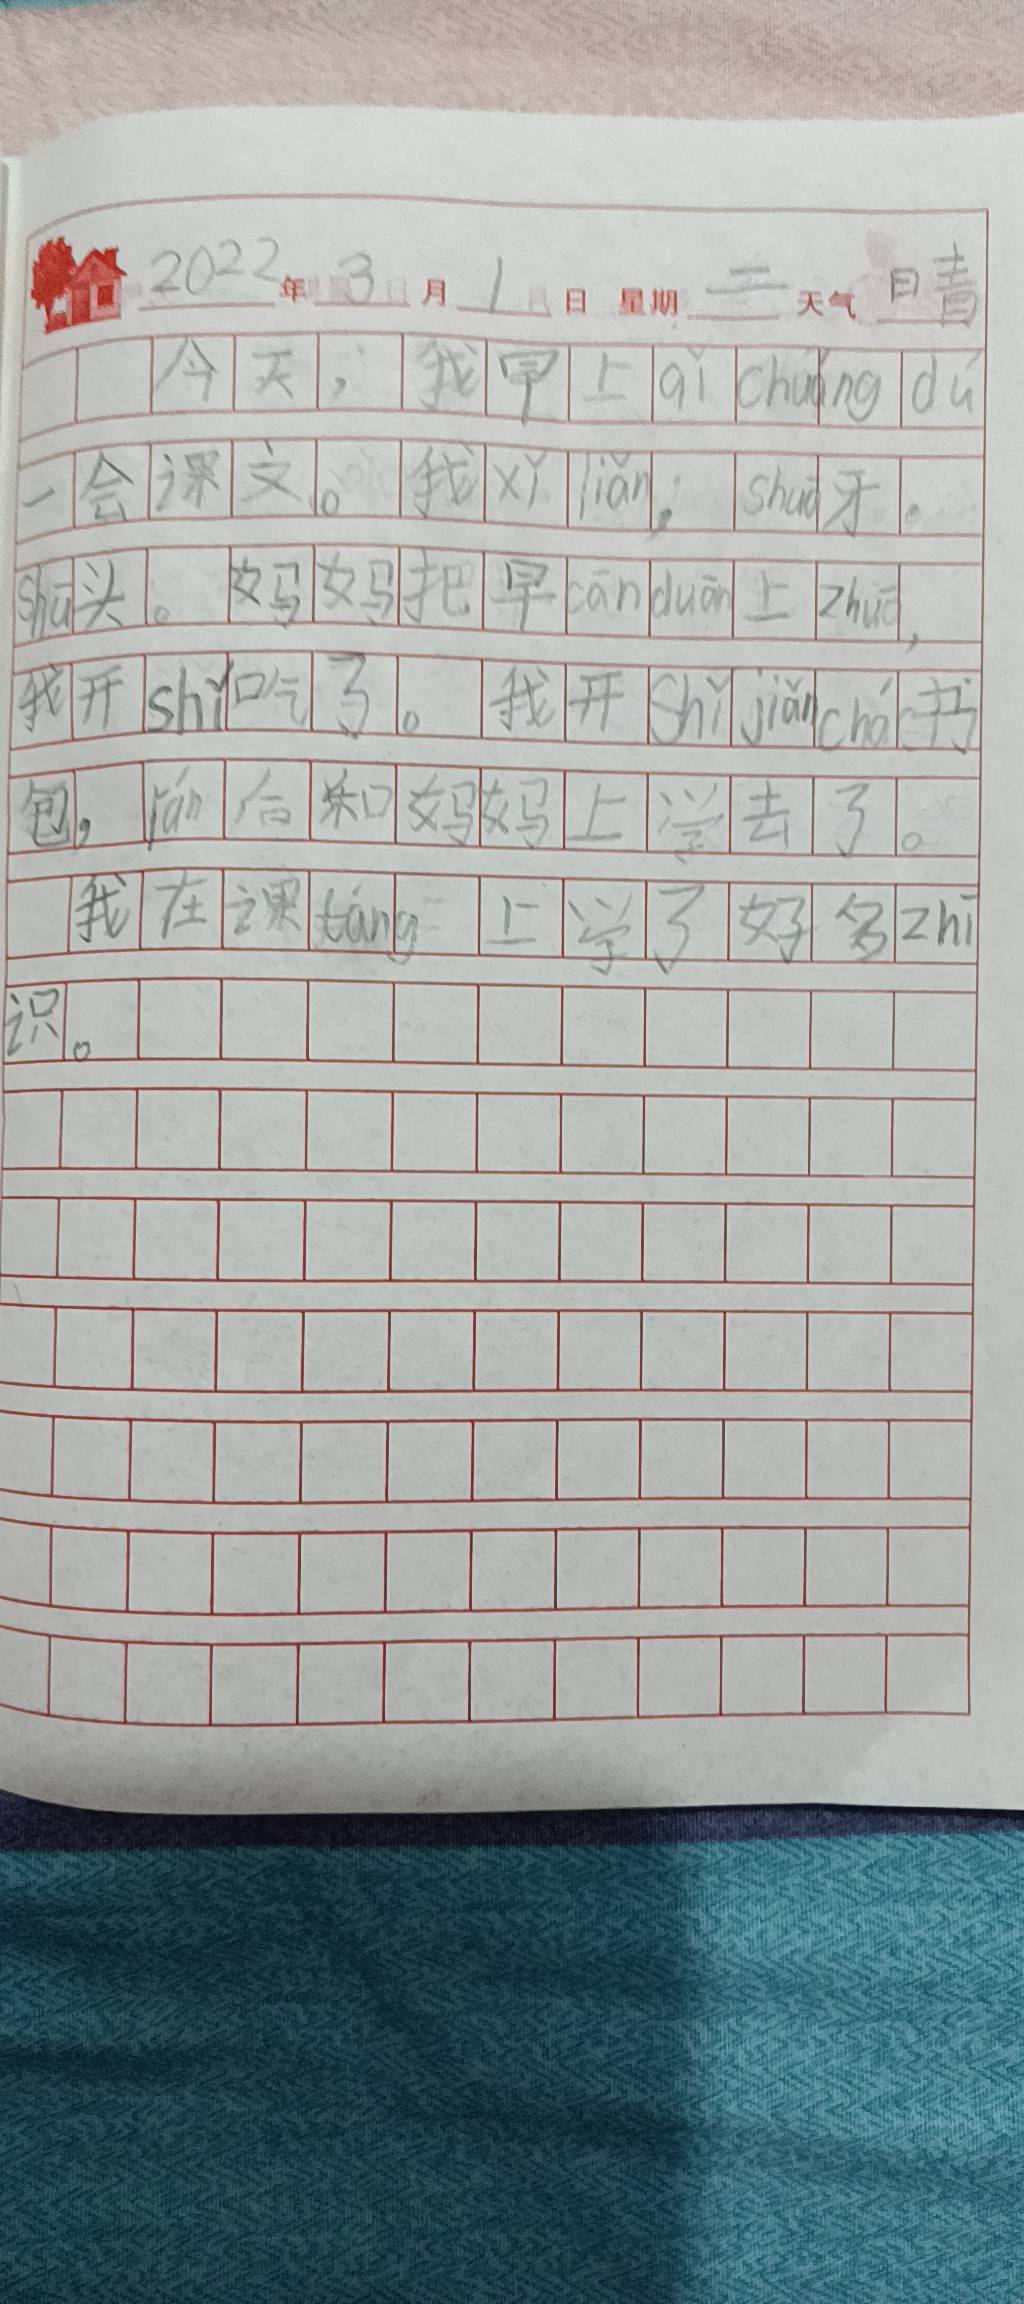 2022年3月1日 星期二 天气 晴
今天，我早上qǐ chuáng dú
一会课文。我xǐ liǎn，shuā牙。
shū头。妈妈把早cān duān上zhuō，
我开shǐ吃了。我开shǐ jiǎn chá书
包，rán后和妈妈上学去了。
我在课táng上学了好多zhī
识。